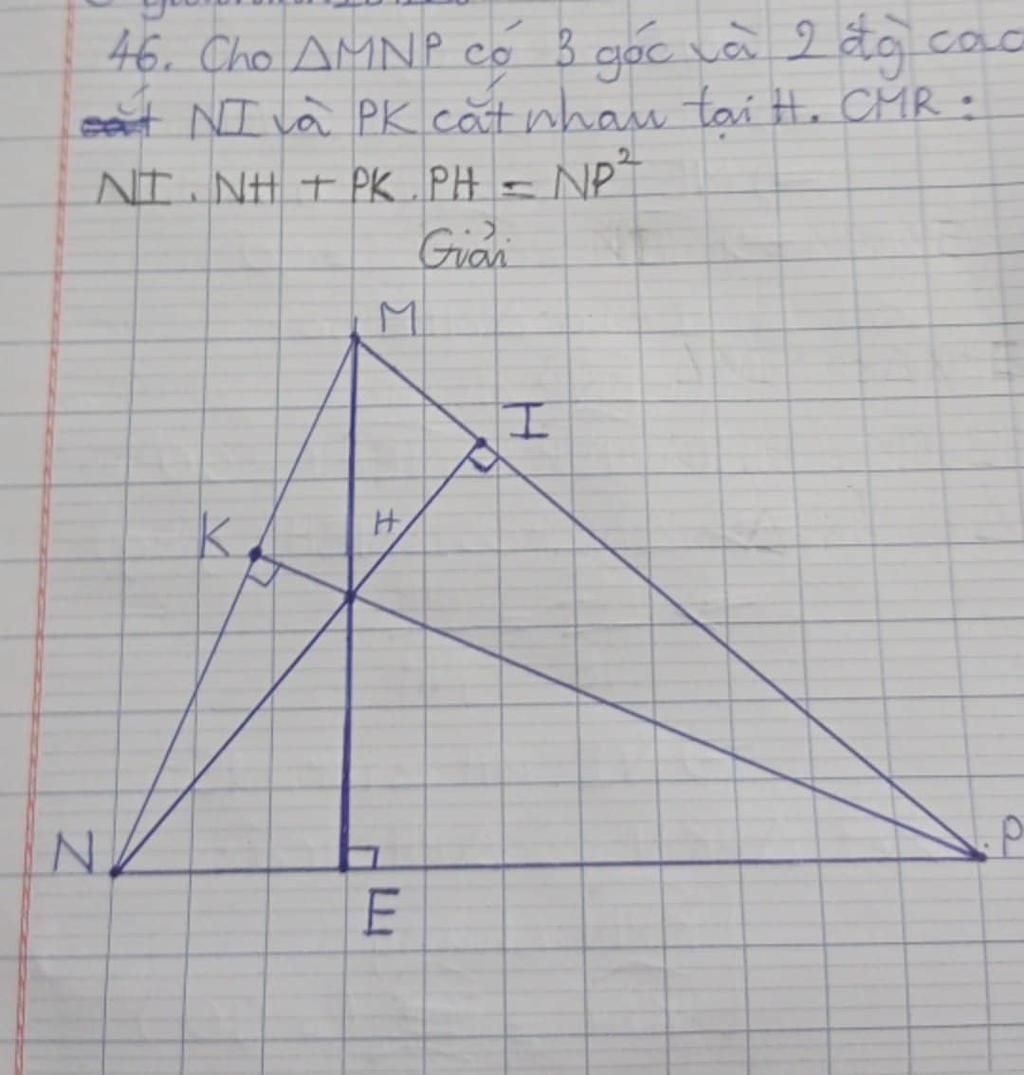 46. Cho ΔMNP có 3 góc và 2 đg̀ cao
NI và PK cắt nhau tại H. CMR :
NI . NH + PK . PH = NP²
Giải
M
I
K
H
N
E
P